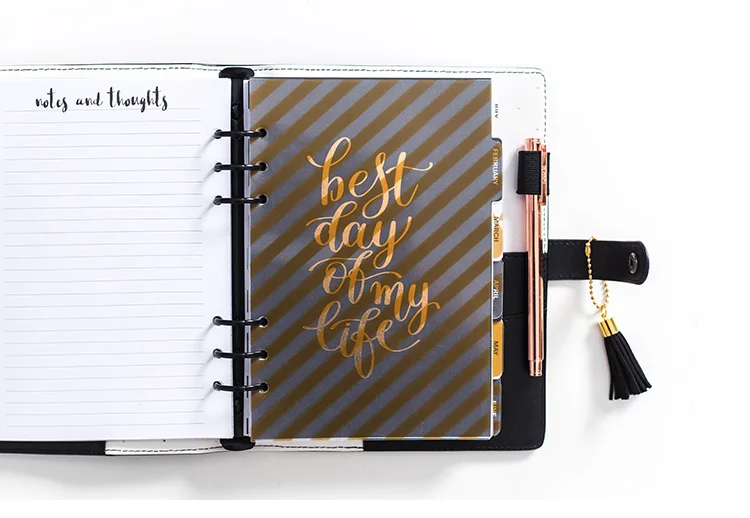 notes and thoughts
best
day
of my
life
FEBRUARY
MARCH
APRIL
MAY